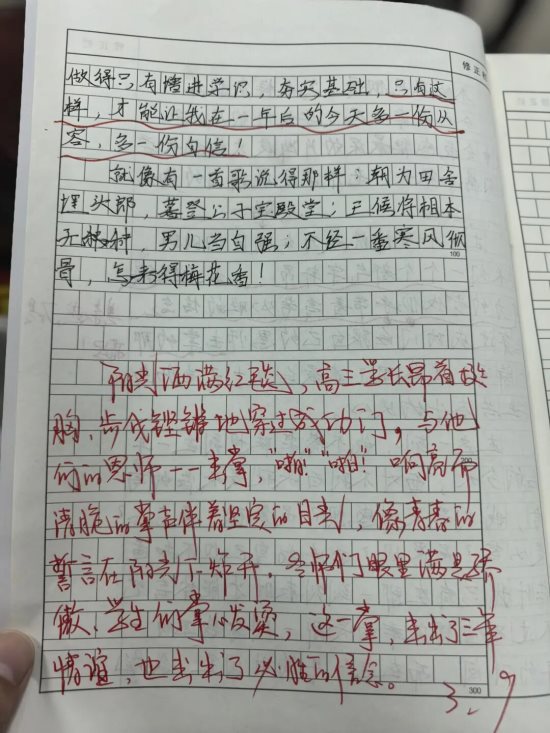 修正栏
做得只有增进学识、夯实基础,只有这
样,才能让我在一年后的今天多一份从
容,多一份自信!
就像有一首歌说得那样:朝为田舍
埋头郎,暮登公子宝殿堂;王侯将相本
无种,男儿当自强;不经一番寒风彻
骨,怎来得梅花香!
100
阳光洒满红毯,高三学长昂首挺
胸、步伐铿锵地穿过成功门,与他
们的恩师一一击掌,“啪!”“啪!”响亮而
清脆的掌声伴着坚定的目光,像青春的
誓言在阳光下炸开。老师们眼里满是骄
傲、学生们掌心发烫,这一掌,击出了三年
情谊,也击出了必胜的信念。
3.9
300